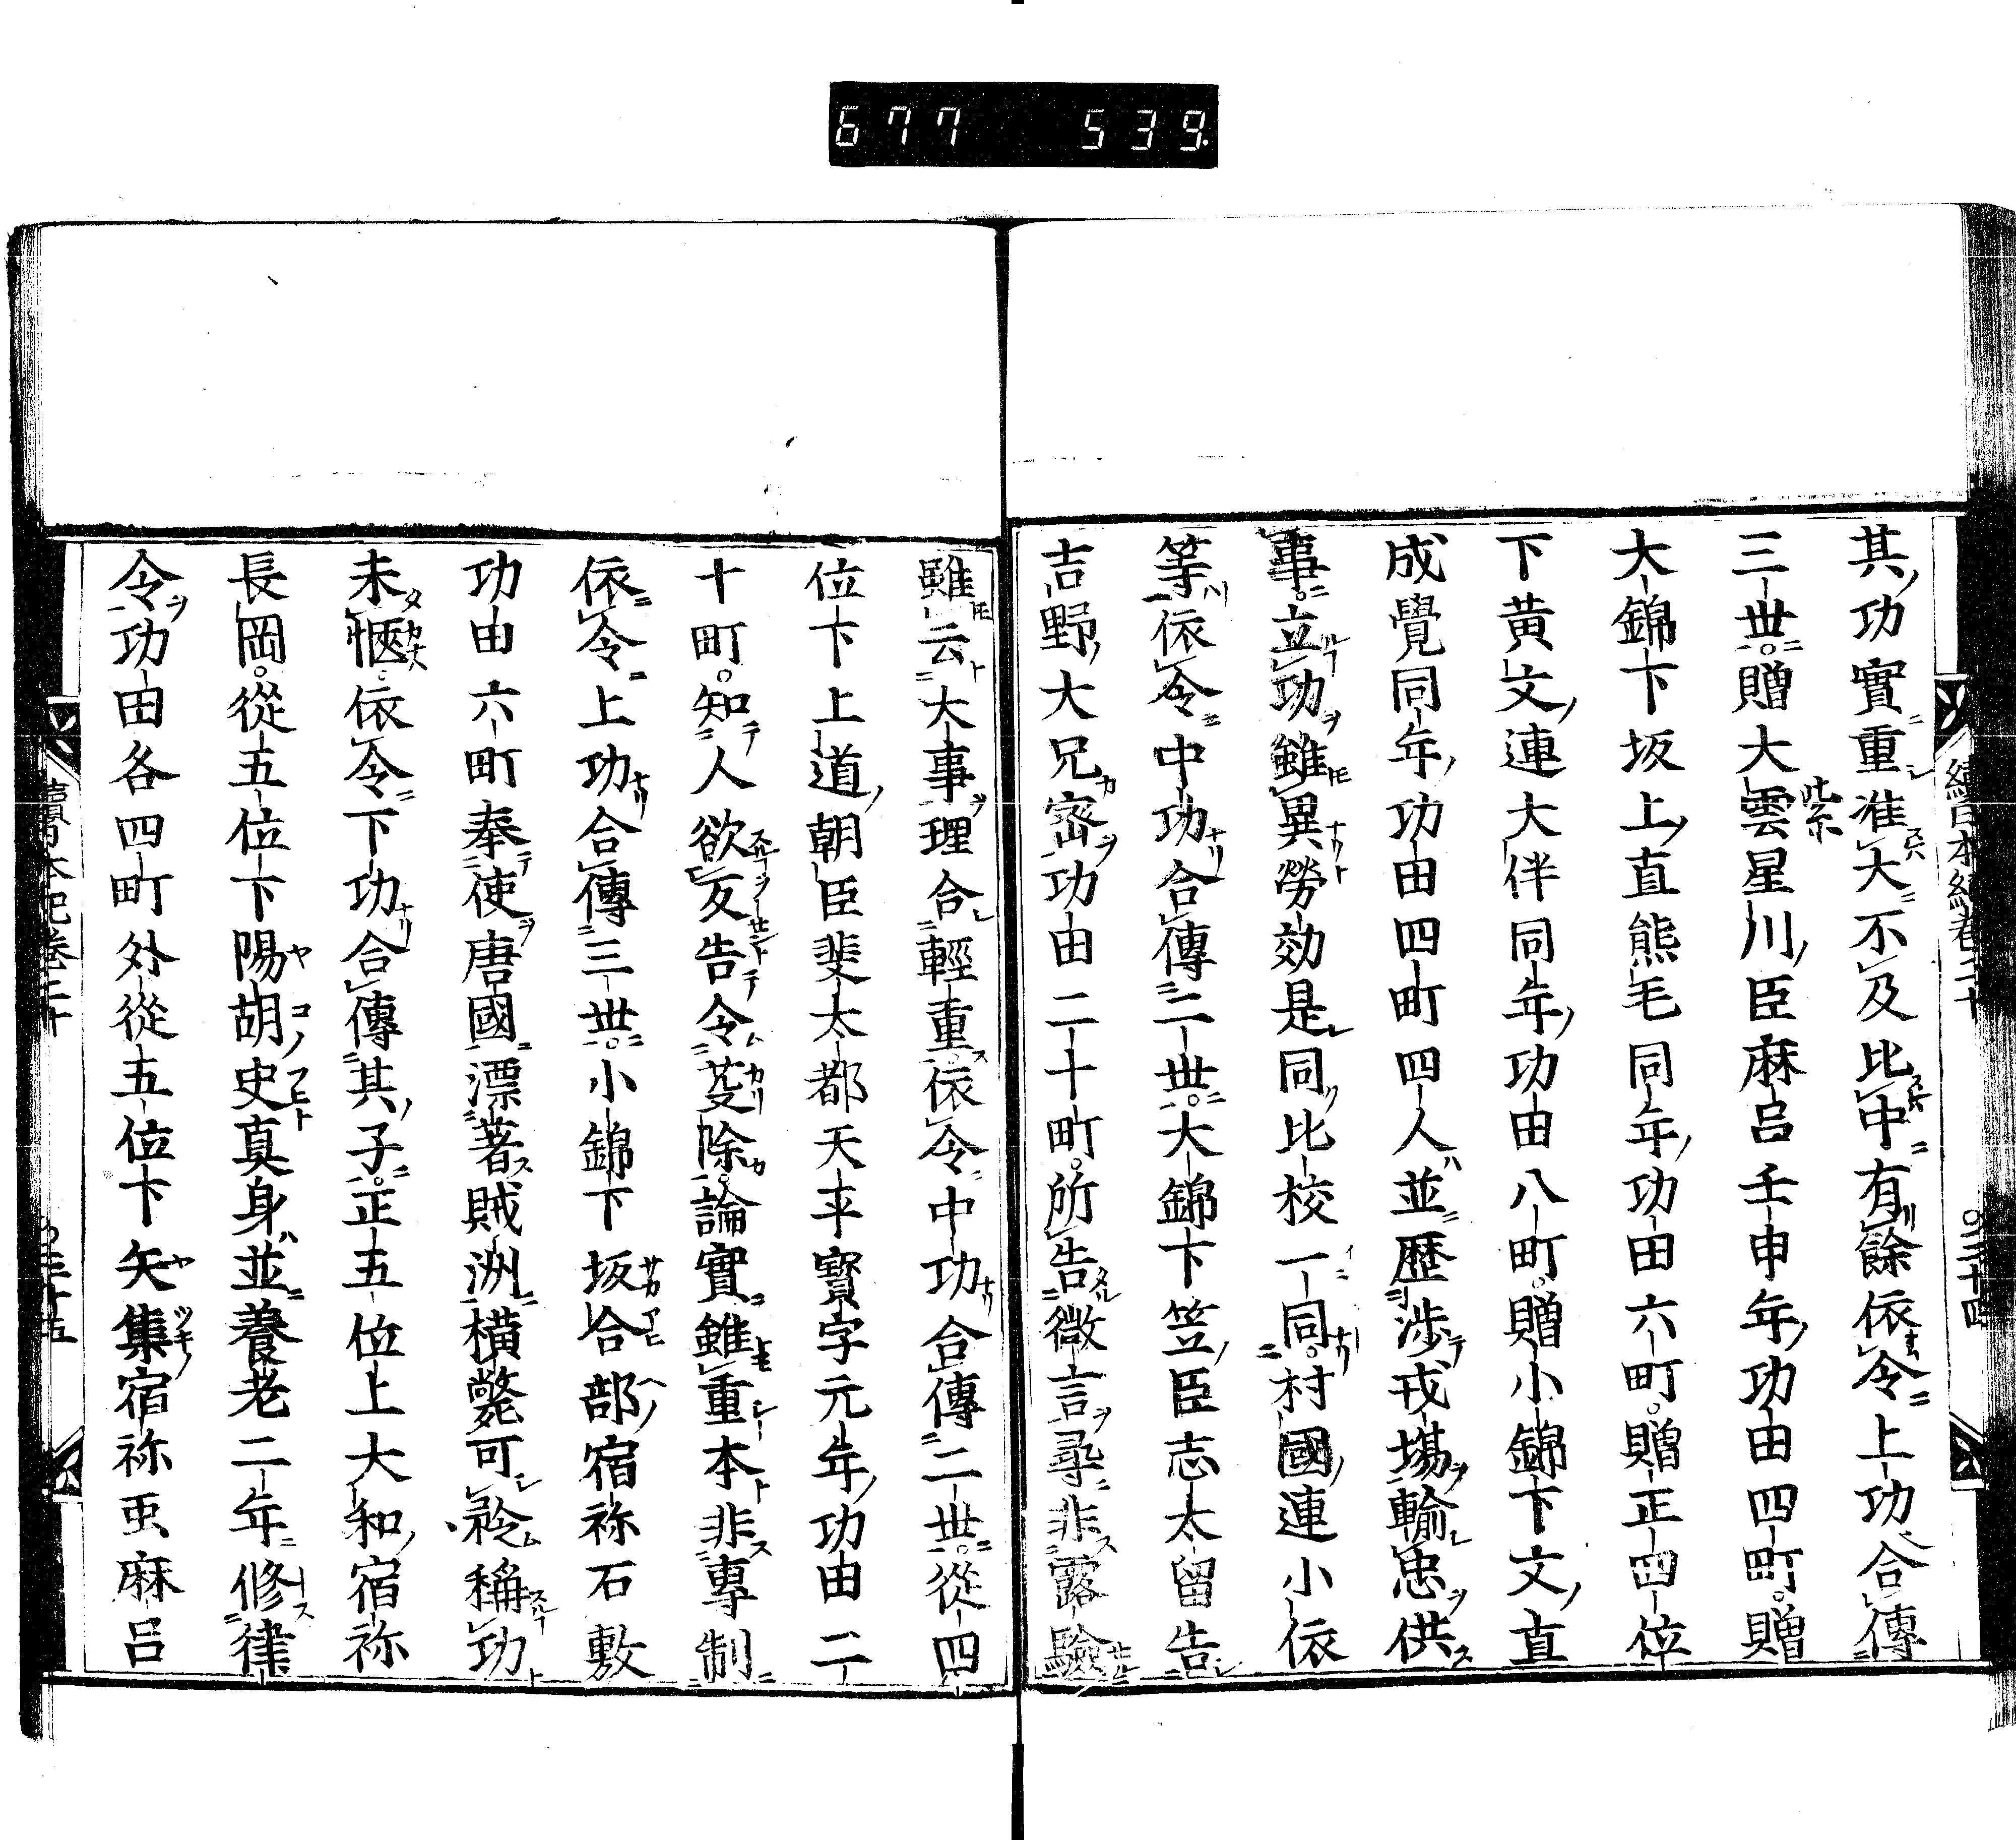 677 539.
續日本紀卷二十 〇三十四
其功實重准大不及比中有餘依令上功合傳
三世贈大雲星川臣麻呂壬申年功田四町贈
紫
大錦下坂上直熊毛同年功田六町贈正四位
下黄文連大伴同年功田八町贈小錦下文直
成覺同年功田四町四人並歴渉戎場輸忠供
事立功雖異勞効是同比校一同村國連小依
等依令中功合傳二世大錦下笠臣志太留告
吉野大兄密功田二十町所告微言尋非露驗
雖云大事理合輕重依令中功合傳二世從四
位下上道朝臣斐太都天平寳字元年功田二
十町知人欲反告令芟除論實雖重本非專制
依令上功合傳三世小錦下坂合部宿祢石敷
功田六町奉使唐國漂著賊洲横斃可矜稱功
未愜依令下功合傳其子正五位上大和宿祢
長岡從五位下陽胡史真身並養老二年修律
令功田各四町外從五位下矢集宿祢虫麻呂
續日本紀卷二十 〇三十五